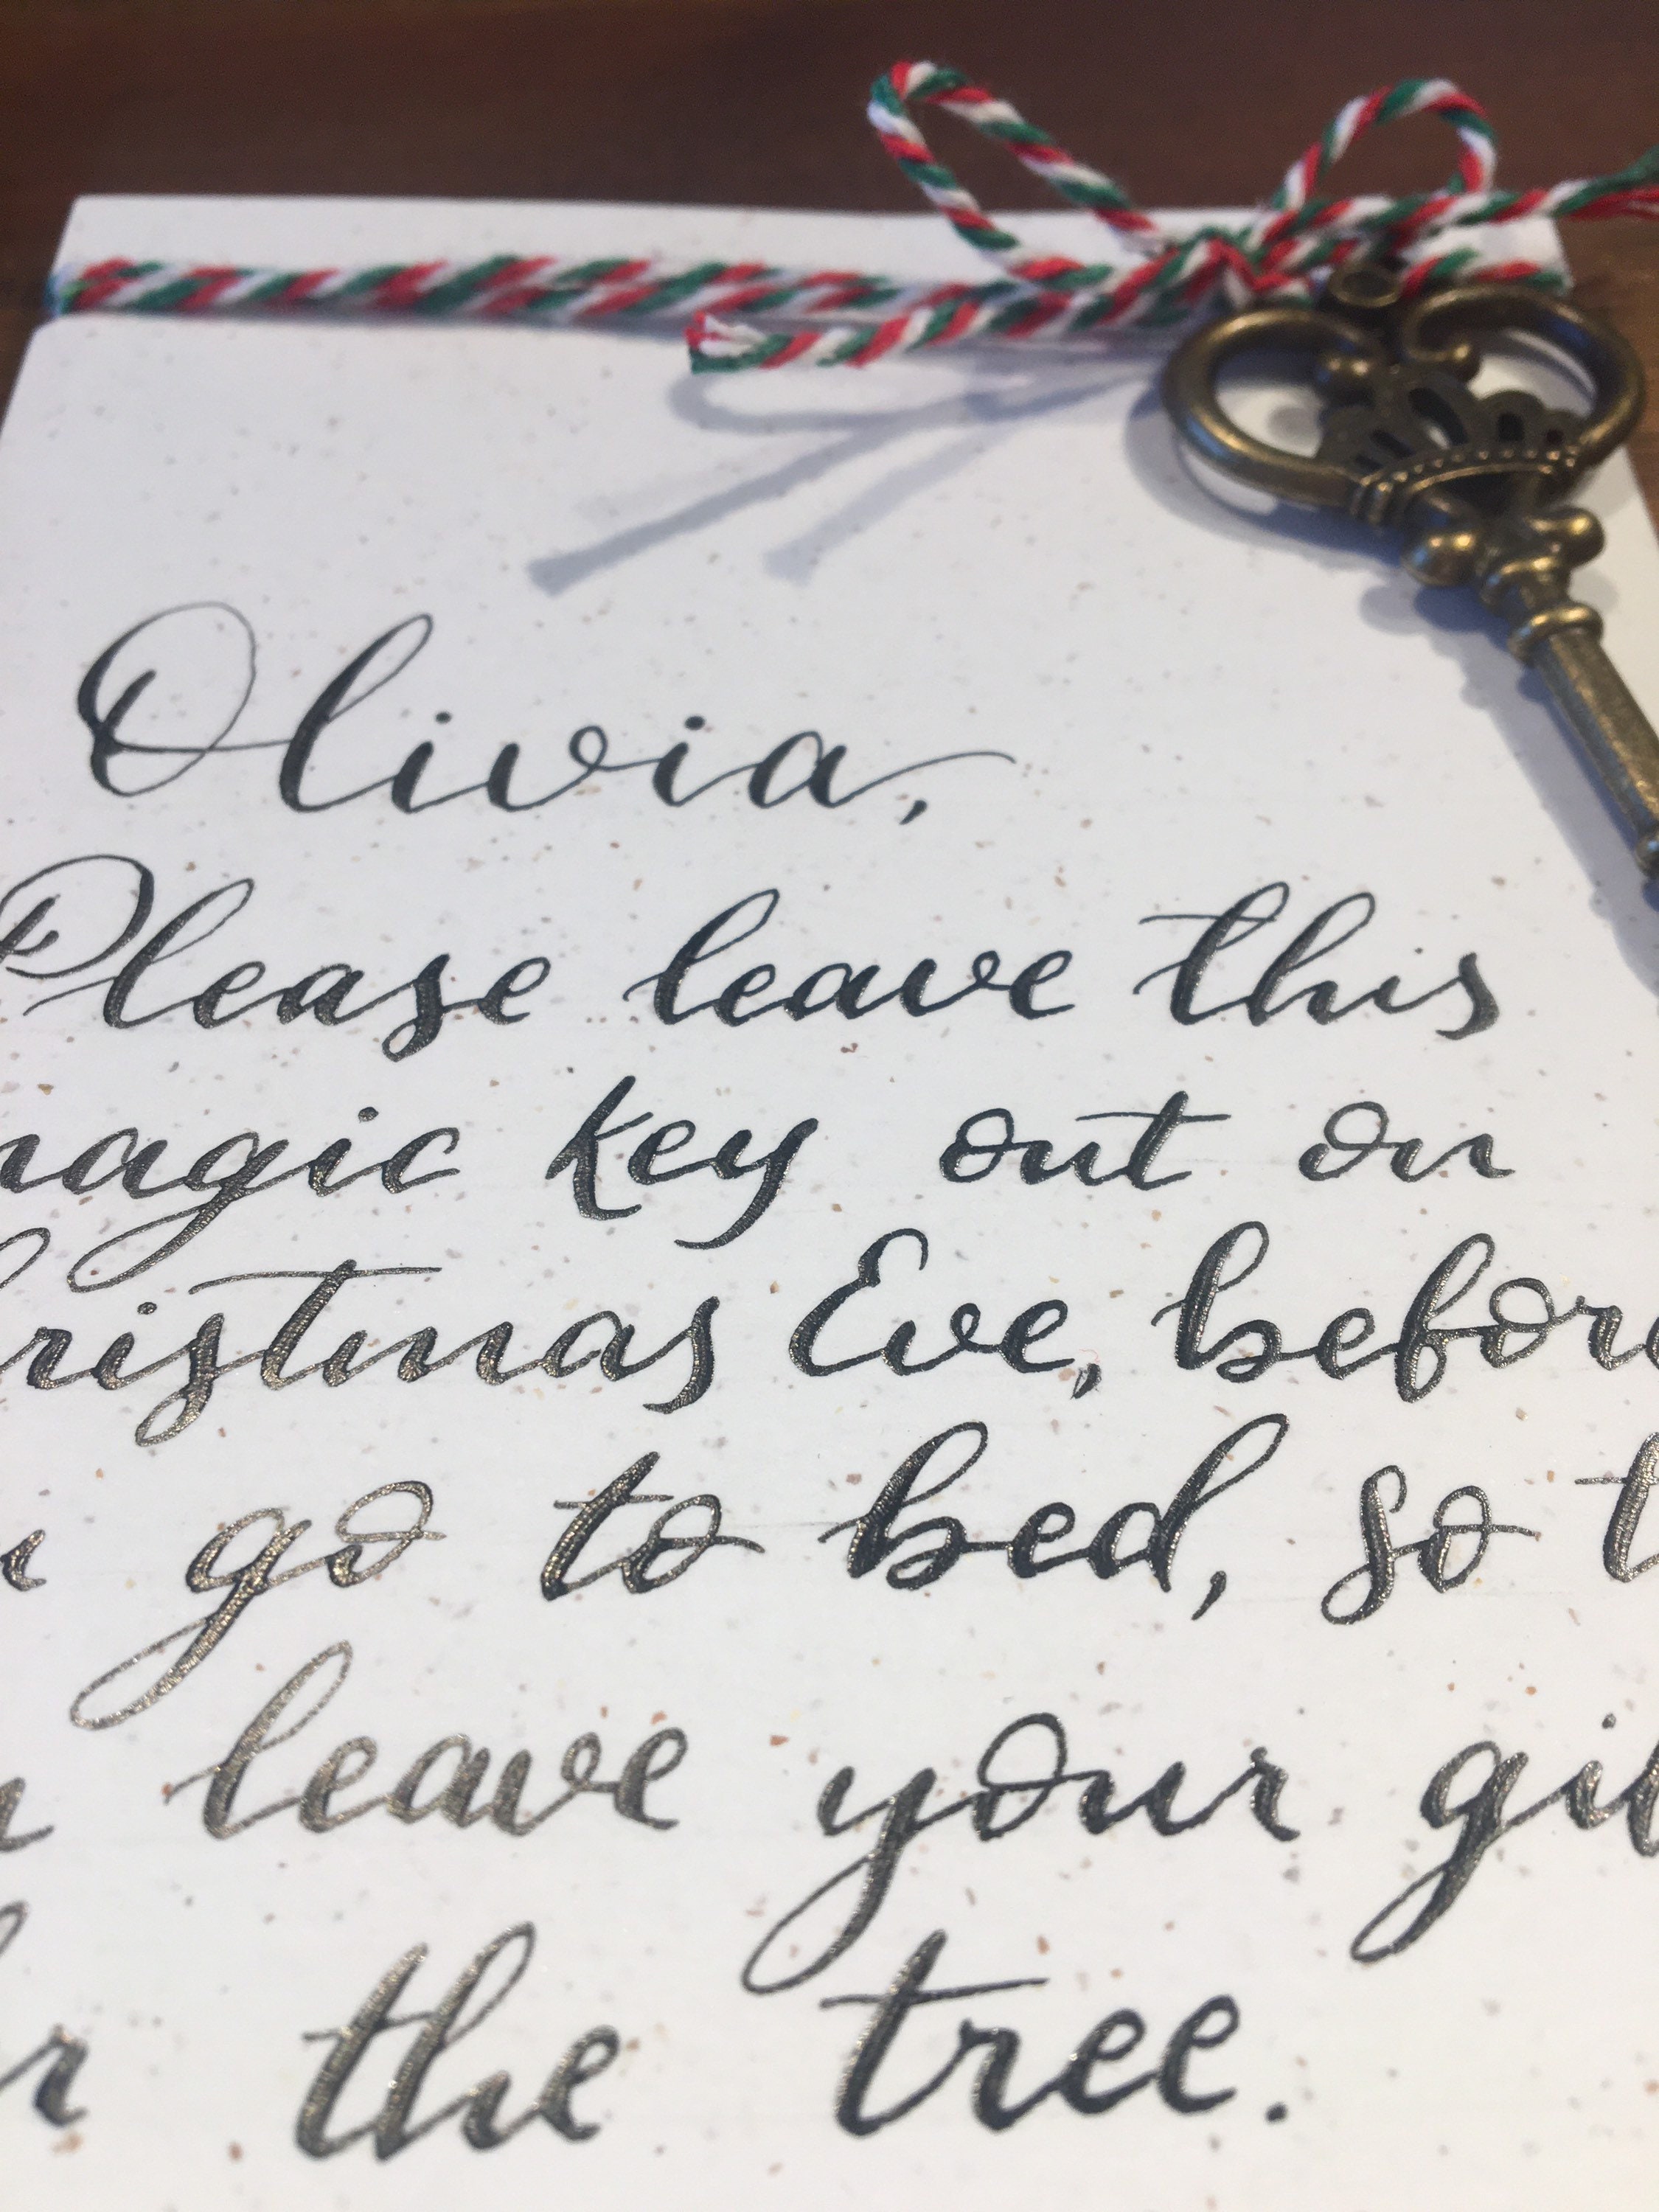 Olivia,
Please leave this
magic key out on
Christmas Eve, before
go to bed, so
leave your
the tree.